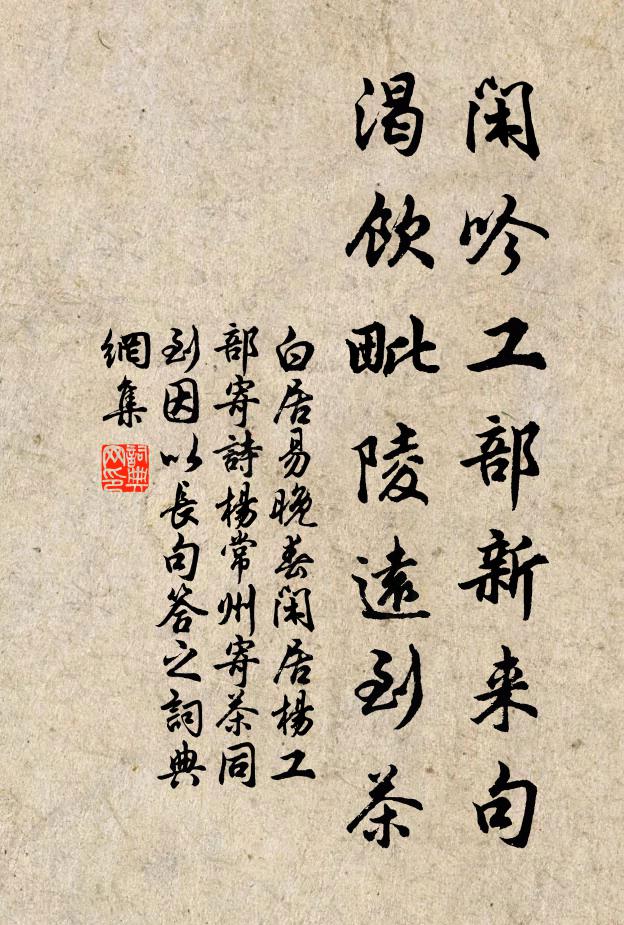 閑吟工部新来句
渴飲毗陵遠到茶
白居易晚春閑居楊工
部寄詩楊常州寄茶同
到因以長句答之詞典
網集
詞典
网印